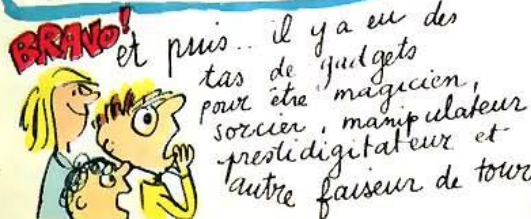 BRAVO!
et puis.. il y a eu des
tas de gadgets
pour être magicien,
sorcier, manipulateur
prestidigitateur et
autre faiseur de tour